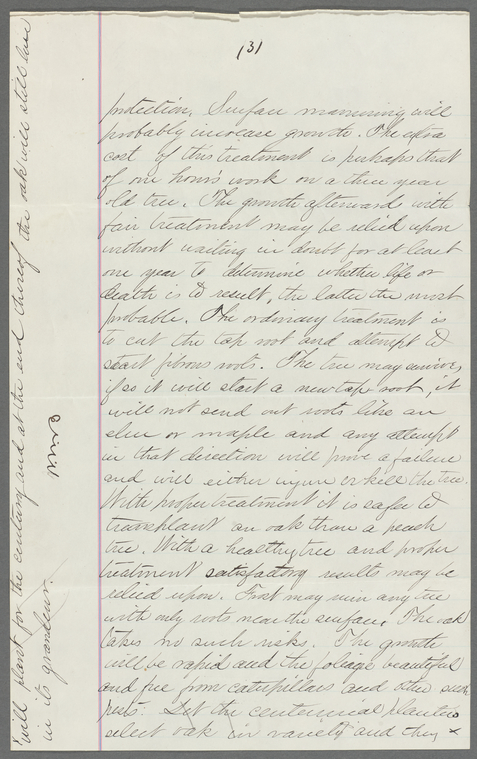 (3)
protection. Surface manuring will
probably increase growth. The extra
cost of this treatment is perhaps that
of one hour's work on a three year
old tree. The growth afterward with
fair treatment may be relied upon
without waiting in doubt for at least
one year to determine whether life or
death is to result, the latter the most
probable. The ordinary treatment is
to cut the tap root and attempt to
start fibrous roots. The tree may survive,
if so it will start a new tap root, it
will not send out roots like an
elm or maple and any attempt
in that direction will prove a failure
and will either injure or kill the tree.
With proper treatment it is safer to
transplant an oak than a peach
tree. With a healthy tree and proper
treatment satisfactory results may be
relied upon. Frost may ruin any tree
with only roots near the surface. The oak
takes no such risks. The growth
will be rapid and the foliage beautiful
and free from caterpillars and other such
pests. Let the centennial planters
select oak in variety and they x
x will plant for the century and at the end thereof the oak will still live
in its grandeur.